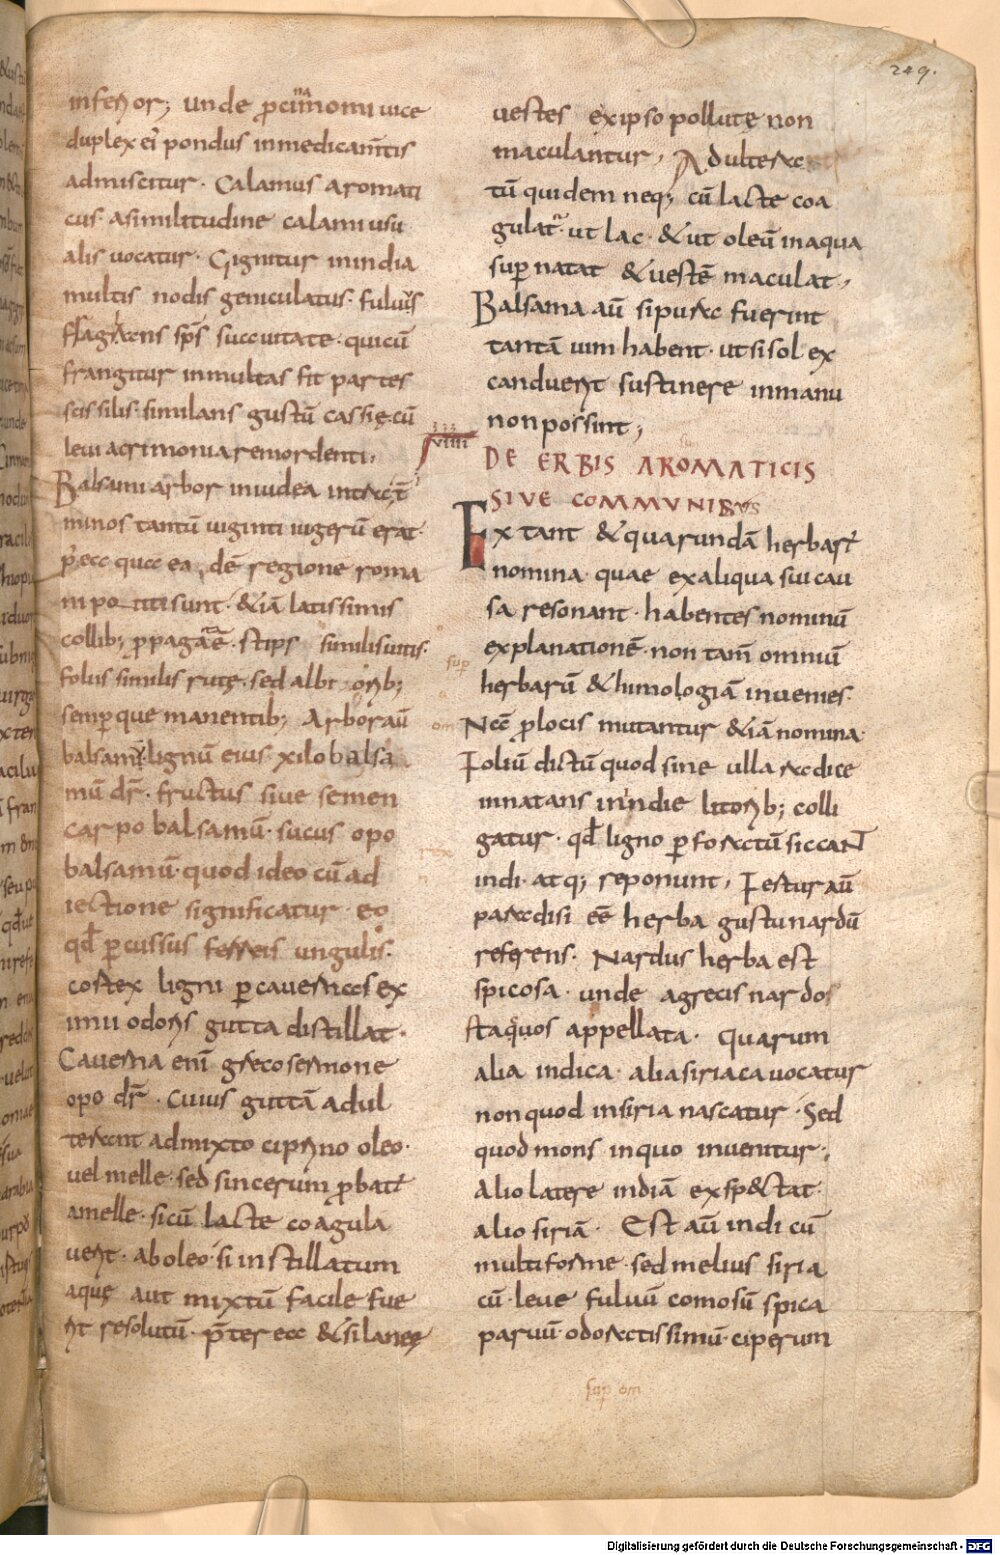 249.
inferior; unde ꝓcinnomi uice
duplex ei̅ pondus inmedicam̅tis
admiscitur· Calamus aromati
cus· asimilitudine calami usu
alis uocatur· Gignitur inindia
multis nodis geniculatus· fuluus
flagrans sp̅s suauitate· quicu̅
frangitur inmultas fit partes
scissilis· similans gustu̅ cassię cu̅
leui acrimonia remordenti,
Balsami arbor iniudea intra t̅
minos tantu̅ uiginti iugeru̅ erat·
p̅ea qua ea, de̅ regione roma
ni potiti sunt· &ia̅ latissimis
collib; ꝓpagata e̅· stips similis uitis·
foliis similis rutę· sed albi orib;
semperque manentib; Arbor au̅
balsamu̅· lignu̅ eius xilobalsa
mu̅ dr̅· fructus siue semen
carpobalsamu̅· sucus opo
balsamu̅· quod ideo cu̅ ad
iectione significatur· eo
qd̅ ꝑcussus ferreis ungulis·
cortex ligni ꝑcauernas ex
imii odoris gutta distillat·
Cauerna eni̅ greco sermone
opo dr̅· cuius gutta̅ adul
terant admixto ciprino oleo·
uel melle· sed sincerum ꝓbat̅
amelle· sicu̅ lacte coagula
uerit· ab oleo· si instillatum
aquę aut mixtu̅ facile fue
rit resolutu̅· p̅terea &si lanee
uestes ex ipso pollutę non
maculantur, Adultera
tu̅ quidem neq; cu̅ lacte coa
gulat̅· ut lac· &ut oleu̅ inaqua
suꝑnatat &ueste̅ maculat,
Balsama au̅ si pura fuerint
tanta̅ uim habent· ut si sol ex
canduerit sustinere inmanu
non possint;
viiii
DE ERBIS AROMATICIS
SIVE COMMVNIBVS
Extant &quarunda̅ herbar̅
nomina· quae exaliqua sui cau
sa resonant· habentes nominu̅
explanatione̅· non tam̅ omniu̅
herbaru̅ &himologia̅ inuenies·
Na̅ ꝓlocis mutantur &ia̅ nomina·
Foliu̅ dictu̅ quod sine ulla radice
innatans inindie litorib; colli
gatur· qd̅ ligno ꝑforatu̅ siccant
indi· atq; reponunt, Fertur au̅
paradisi ee̅ herba gustu nardu̅
referens· Nardus herba est
spicosa· unde agrecis nardos
staquos appellata· Quarum
alia indica· alia siriaca uocatur
non quod insiria nascatur· Sed
quod mons inquo inuenitur·
alio latere india̅ exsp&ctat·
alio siria̅· Est au̅ indicu̅
multiforme· sed melius siria
cu̅· leue fuluu̅ comosu̅ spica
paruu̅ odoratissimu̅· ciperum
Digitalisierung gefördert durch die Deutsche Forschungsgemeinschaft - DFG